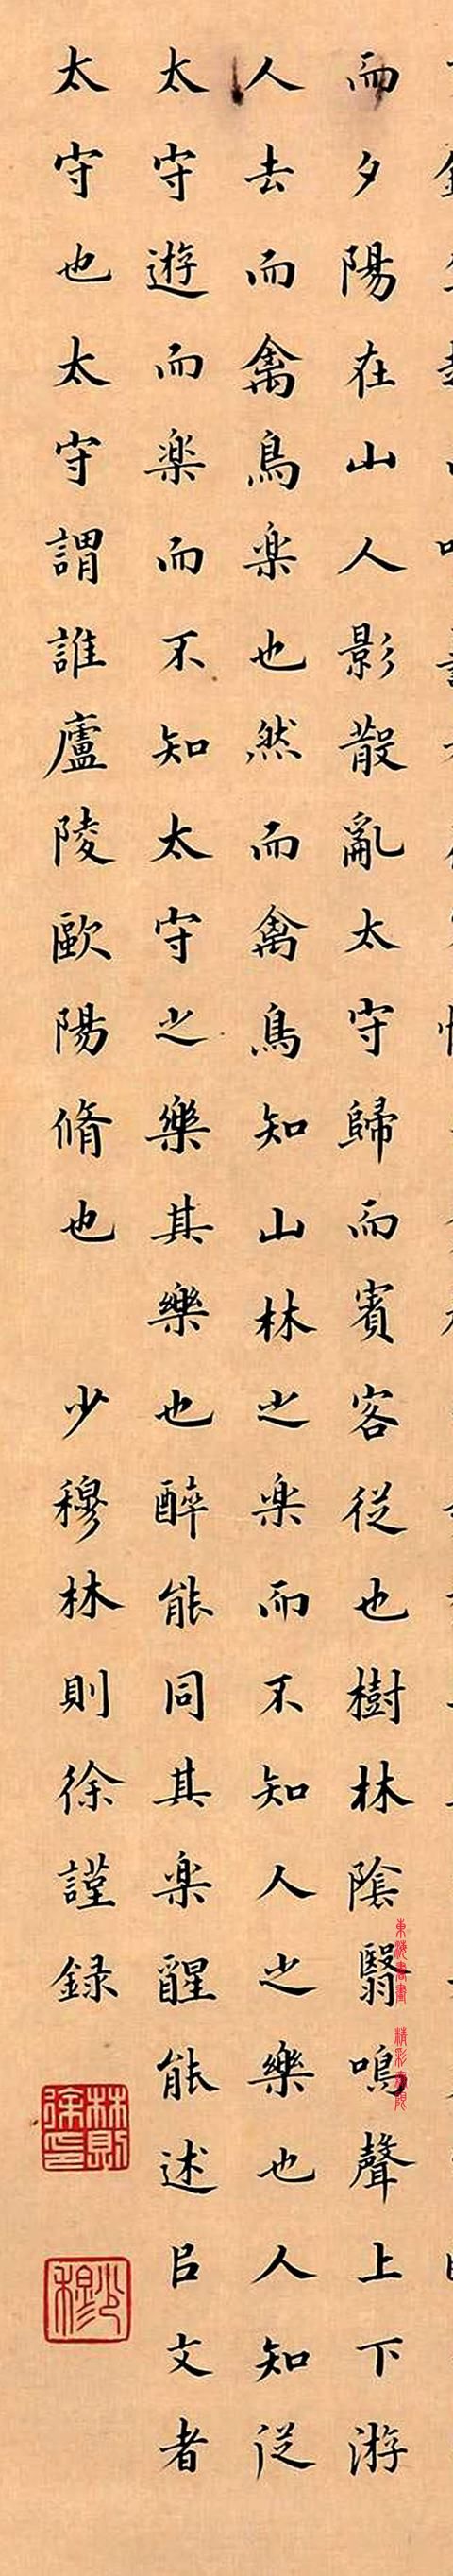 而夕陽在山人影散亂太守歸而賓客從也樹林陰翳鳴聲上下游
人去而禽鳥楽也然而禽鳥知山林之楽而不知人之樂也人知從
太守遊而楽而不知太守之樂其樂也醉能同其楽醒能述㠯文者
太守也太守謂誰廬陵歐陽脩也 少穆林則徐謹録
林則徐印
少穆
東海書畫 精彩